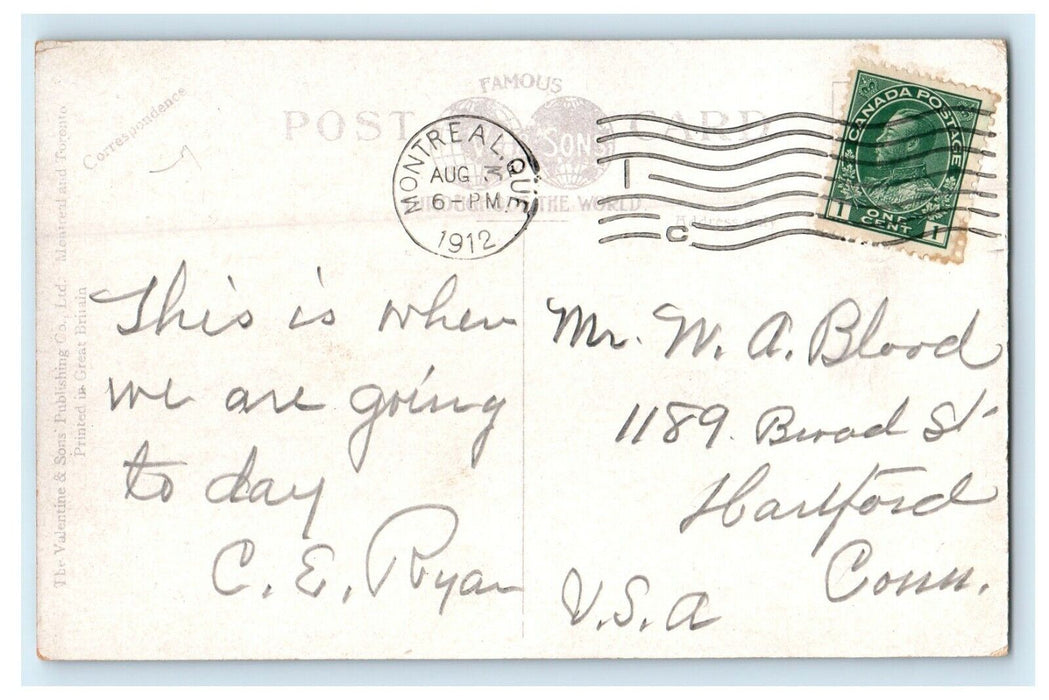 FAMOUS
POST CARD
SONS
THROUGHOUT THE WORLD
Correspondence
Address
MONTREAL, QUE
AUG 3
6-PM
1912
C
CANADA POSTAGE
1 ONE CENT 1
The Valentine & Sons Publishing Co., Ltd. Montreal and Toronto
Printed in Great Britain
This is when
we are going
to day
C. E. Ryan
Mr. W. A. Blood
1189. Broad St
Hartford
Conn.
U.S.A